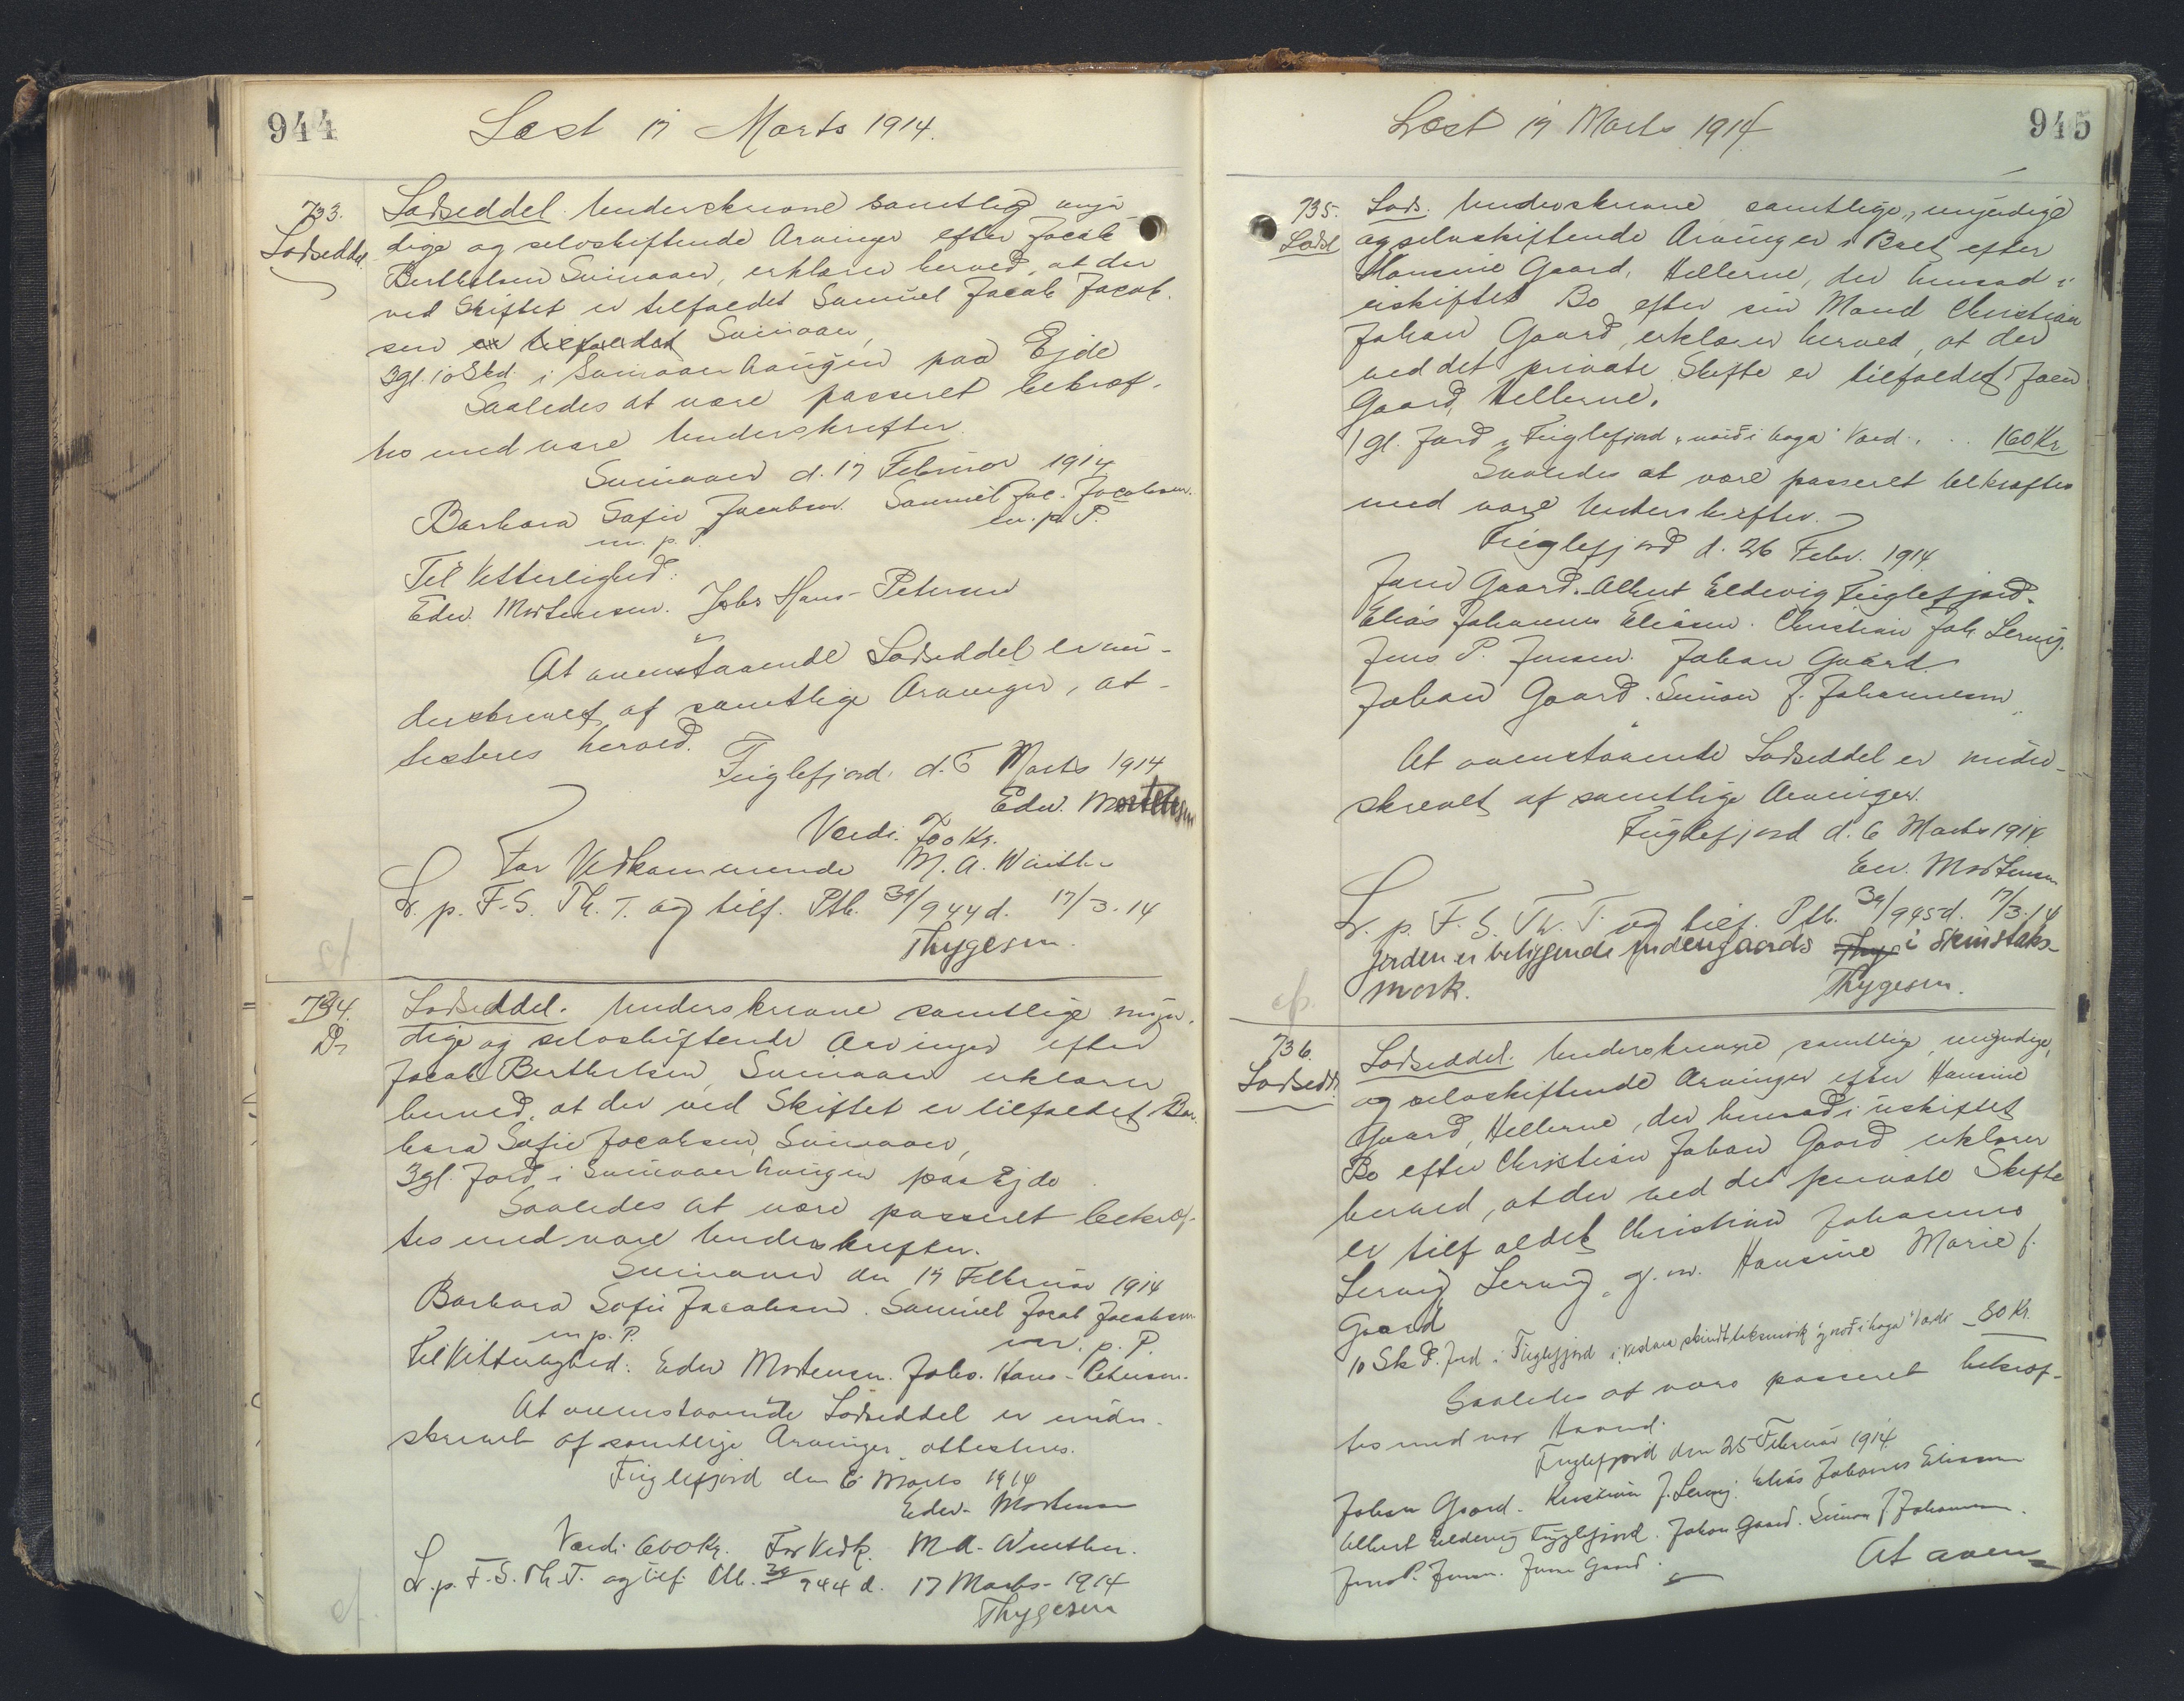 944
Læst 17 Marts 1914.
733.
Lodseddel.
Lodseddel. Underskrevne samtlig myn
dige og selvskiftende Arvinger efter Jacob
Berthelsen Svinaaer, erklærer herved, at der
ved Skiftet er tilfaldet Samuel Jacob Jacob-
sen er tilfaldet Svinaaer,
3 gl. 10 Skd. i Svinaaer haugen paa Ejde
Saaledes at være passeret bekræf-
tes med vore Underskrifter.
Svinaaer d. 17 Februar 1914
Barbara Sofie Jacobsen. Samuel Jac. Jacobsen.
m. p. P.
m. p. P.
Til Vitterlighed:
Edw. Mortensen. Johs Hans-Petersen
At ovenstaaende Lodseddel er un-
derskrevet af samtlige Arvinger, at-
testeres herved.
Fuglefjord. d. 6 Marts 1914
Edw. Mortensen
Værdi. 700 Kr.
For Vedkommende M. A. Winther
L. p. F. S. Th. T. og tilf. Ptb. 39/944 d. 17/3-14
Thygesen.
734.
Do
Lodseddel. Underskrevne samtlige myn-
dige og selvskiftende Arvinger efter
Jacob Berthelsen, Svinaaer erklærer
herved, at der ved Skiftet er tilfaldet Bar-
bara Sofie Jacobsen, Svinaaer,
3 gl. Jord i Svinaaer haugen paa Ejde
Saaledes at være passeret bekræf-
tes med vore Underskrifter.
Svinaaer den 17 Februar 1914
Barbara Sofie Jacobsen. Samuel Jacob Jacobsen
m. p. P.
m. p. P.
Til Vitterlighed: Edw Mortensen. Johs. Hans-Petersen.
At ovenstaaende Lodseddel er under-
skrevet af samtlige Arvinger attesteres.
Fuglefjord den 6 Marts 1914
Edw. Mortensen
Værdi 600 Kr. For Vedk. M. A. Winther.
L. p. F. S. Th. T. og tilf. Ptb. 39/944 d. 17 Marts-1914
Thygesen
cf.
945
Læst 17 Marts 1914
735.
Lodsl
Lods. Underskrevne samtlige, myndige
og selvskiftende Arvinger i Boet efter
Hansine Gaard, Hellerne, der hensad i
uskiftet Bo efter sin Mand Christian
Johan Gaard, erklærer herved, at der
ved det private Skifte er tilfaldet Joen
Gaard, Hellerne,
1 gl. Jord i Fuglefjord "norð i haga" Værd. . . 160 Kr
Saaledes at være passeret bekræftes
med vore Underskrifter.
Fuglefjord d. 26 Febr. 1914
Joen Gaard. Albert Eldevig Fuglefjord.
Elias Johannes Eliasen. Christian Joh Lervig.
Jens P. Jensen. Johan Gaard.
Johan Gaard. Simon J. Johannesen
At ovenstaaende Lodseddel er under-
skrevet af samtlige Arvinger.
Fuglefjord d. 6 Marts 1914
Edv. Mortensen
L. p. F. S. Th. T. og tilf. Ptb. 39/945 d. 17/3-14
Jorden er beliggende indengaards Thyg i Skinstaks-
mørk.
Thygesen.
cf.
736.
Lodsedd.
Lodseddel. Underskrevne samtlige, myndige,
og selvskiftende Arvinger efter Hansine
Gaard, Hellerne, der hensad i uskiftet
Bo efter Christian Johan Gaard erklærer
herved, at der ved det private Skifte
er tilfaldet Christian Johannes
Lervig, Lervig, g. m. Hansine Marie f.
Gaard
10 Sk d. Jord i Fuglefjord i, vestara skindtaksmørk og norð i haga" Værdi 80 Kr.
Saaledes at være passeret bekræf-
tes med vor Haand.
Fuglefjord den 25 Februar 1914.
Johan Gaard. Kristian J. Lervig. Elias Johannes Eliasen
Albert Eldevig Fuglefjord. Johan Gaard. Simon J Johannesen.
Jens P. Jensen. Joen Gaard.
At oven=